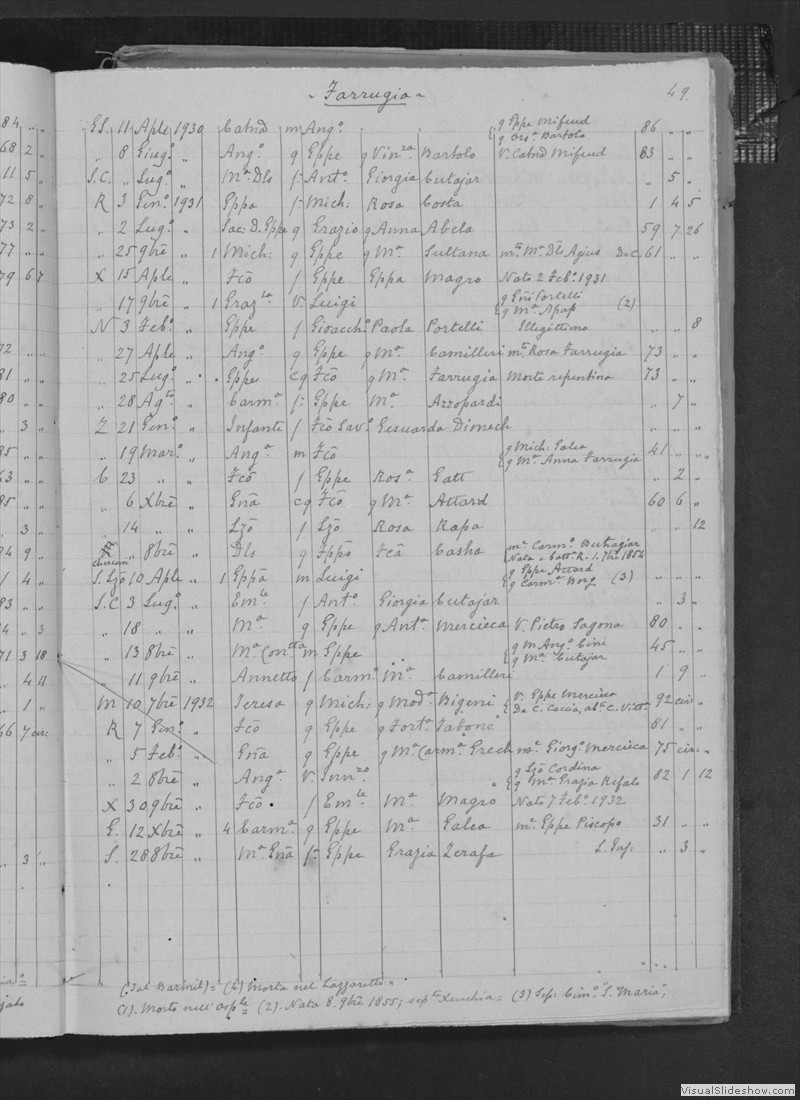 ~ Farrugia ~ 49.
84 „ „ G.S. 11 Aple 1930 Catnd m Angº g Eppe Mifsud g Orsª Bartolo 86 „ „
68 2 „ „ 8 Giugº „ Angº g Eppe g Vinzª Bartolo V. Catnd Mifsud 83 „ „
11 5 „ S.C. „ Lugº „ Mª Dls f Antº Giorgia Cutajar „ 5 „
72 8 „ R 3 Genº 1931 Eppa f Mich: Rosa Costa 1 4 5
73 2 „ „ 2 Lugº „ Sac: D. Eppe g Grazio g Anna Abela 59 7 26
77 „ „ „ 25 9bre „ 1 Mich: g Eppe g Mª Sultana mº Mª Dls Agius De C. 61 „ „
79 6 7 X 15 Aple „ Fcõ f Eppe Eppa Magro Nato 2 Febº 1931
„ 17 9bre „ 1 Grazla V. Luigi g Gni Portelli g Mª Apap (2)
N 3 Febº „ Eppe f Gioacchº Paola Portelli Illegittimo „ „ 8
72 „ „ „ 27 Aple „ Angº g Eppe g Mª Camilleri mº Rosa Farrugia 73 „ „
81 „ „ „ 25 Lugº „ Eppe c g Fcõ g Mª Farrugia Morte repentina 73 „ „
80 „ „ „ 28 Agto „ Carmª f Eppe Mª Azzopardi „ 7 „
„ 3 „ Z 21 Genº „ Infante f Fcõ Savº Gesuarda Dimech „ „ „
85 „ „ „ 19 Marº „ Angª m Fcõ g Mich: Galea g Mª Anna Farrugia 41 „ „
63 „ „ C 23 „ „ Fcõ f Eppe Rosª Gatt „ 2 „
85 „ „ „ 6 Xbre „ Gnã c g Fcõ g Mª Attard 60 6 „
„ 3 „ „ 14 „ „ Lzõ f Lzõ Rosa Rapa „ „ 12
94 9 „ „ 8bre „ Dls g Fppõ Fcã Casha mº Carmº Buttagiar
1 4 „ S. Lzõ 10 Aple „ 1 Eppã m Luigi g Eppe Attard g Carmª Borg (3) „ „ „
83 „ „ S.C 3 Lugº „ Emle f Antº Giorgia Cutajar „ 3 „
„ 3 „ 18 „ „ Mª g Eppe g Antª Mercieca V. Pietro Sagona 80 „ „
71 3 18 „ 13 8bre „ Mª Contta m Eppe g m Angº Cini g Mª Cutajar 45 „ „
„ 4 11 „ 11 9bre „ Annetto f Carmº Mª Camilleri 1 9 „
„ 1 „ M 10 7bre 1932 Teresa g Mich: g Modª Bigeni V. Eppe Mercieca 92 cir: „
66 7 cir: R 7 Genº „ Fcõ g Eppe g Fortª Tabone 81 „ „
„ 5 Febº „ Gnã g Eppe g Mª Carmª Grech mº Giorgº Mercieca 75 cir: „
„ 2 8bre „ Angª V. Innzo g Lzõ Cordina g Mª Grazia Refalo 82 1 12
X 30 9bre „ Fcõ f Emle Mª Magro Nato 7 Febº 1932
G. 12 Xbre „ 4 Carmª g Eppe Mª Galea mº Eppe Piscopo 31 „ „
„ 3 „ S. 28 8bre „ Mª Gnã f Eppe Grazia Zerafa „ 3 „
(4) Morta nel Lazzaretto =
(1). Morto nell' Osple = (2). Nata 8. 9bre 1855; seplª Xeuchia = (3) Sep: Cimº "S. Maria";
VisualSlideshow.com